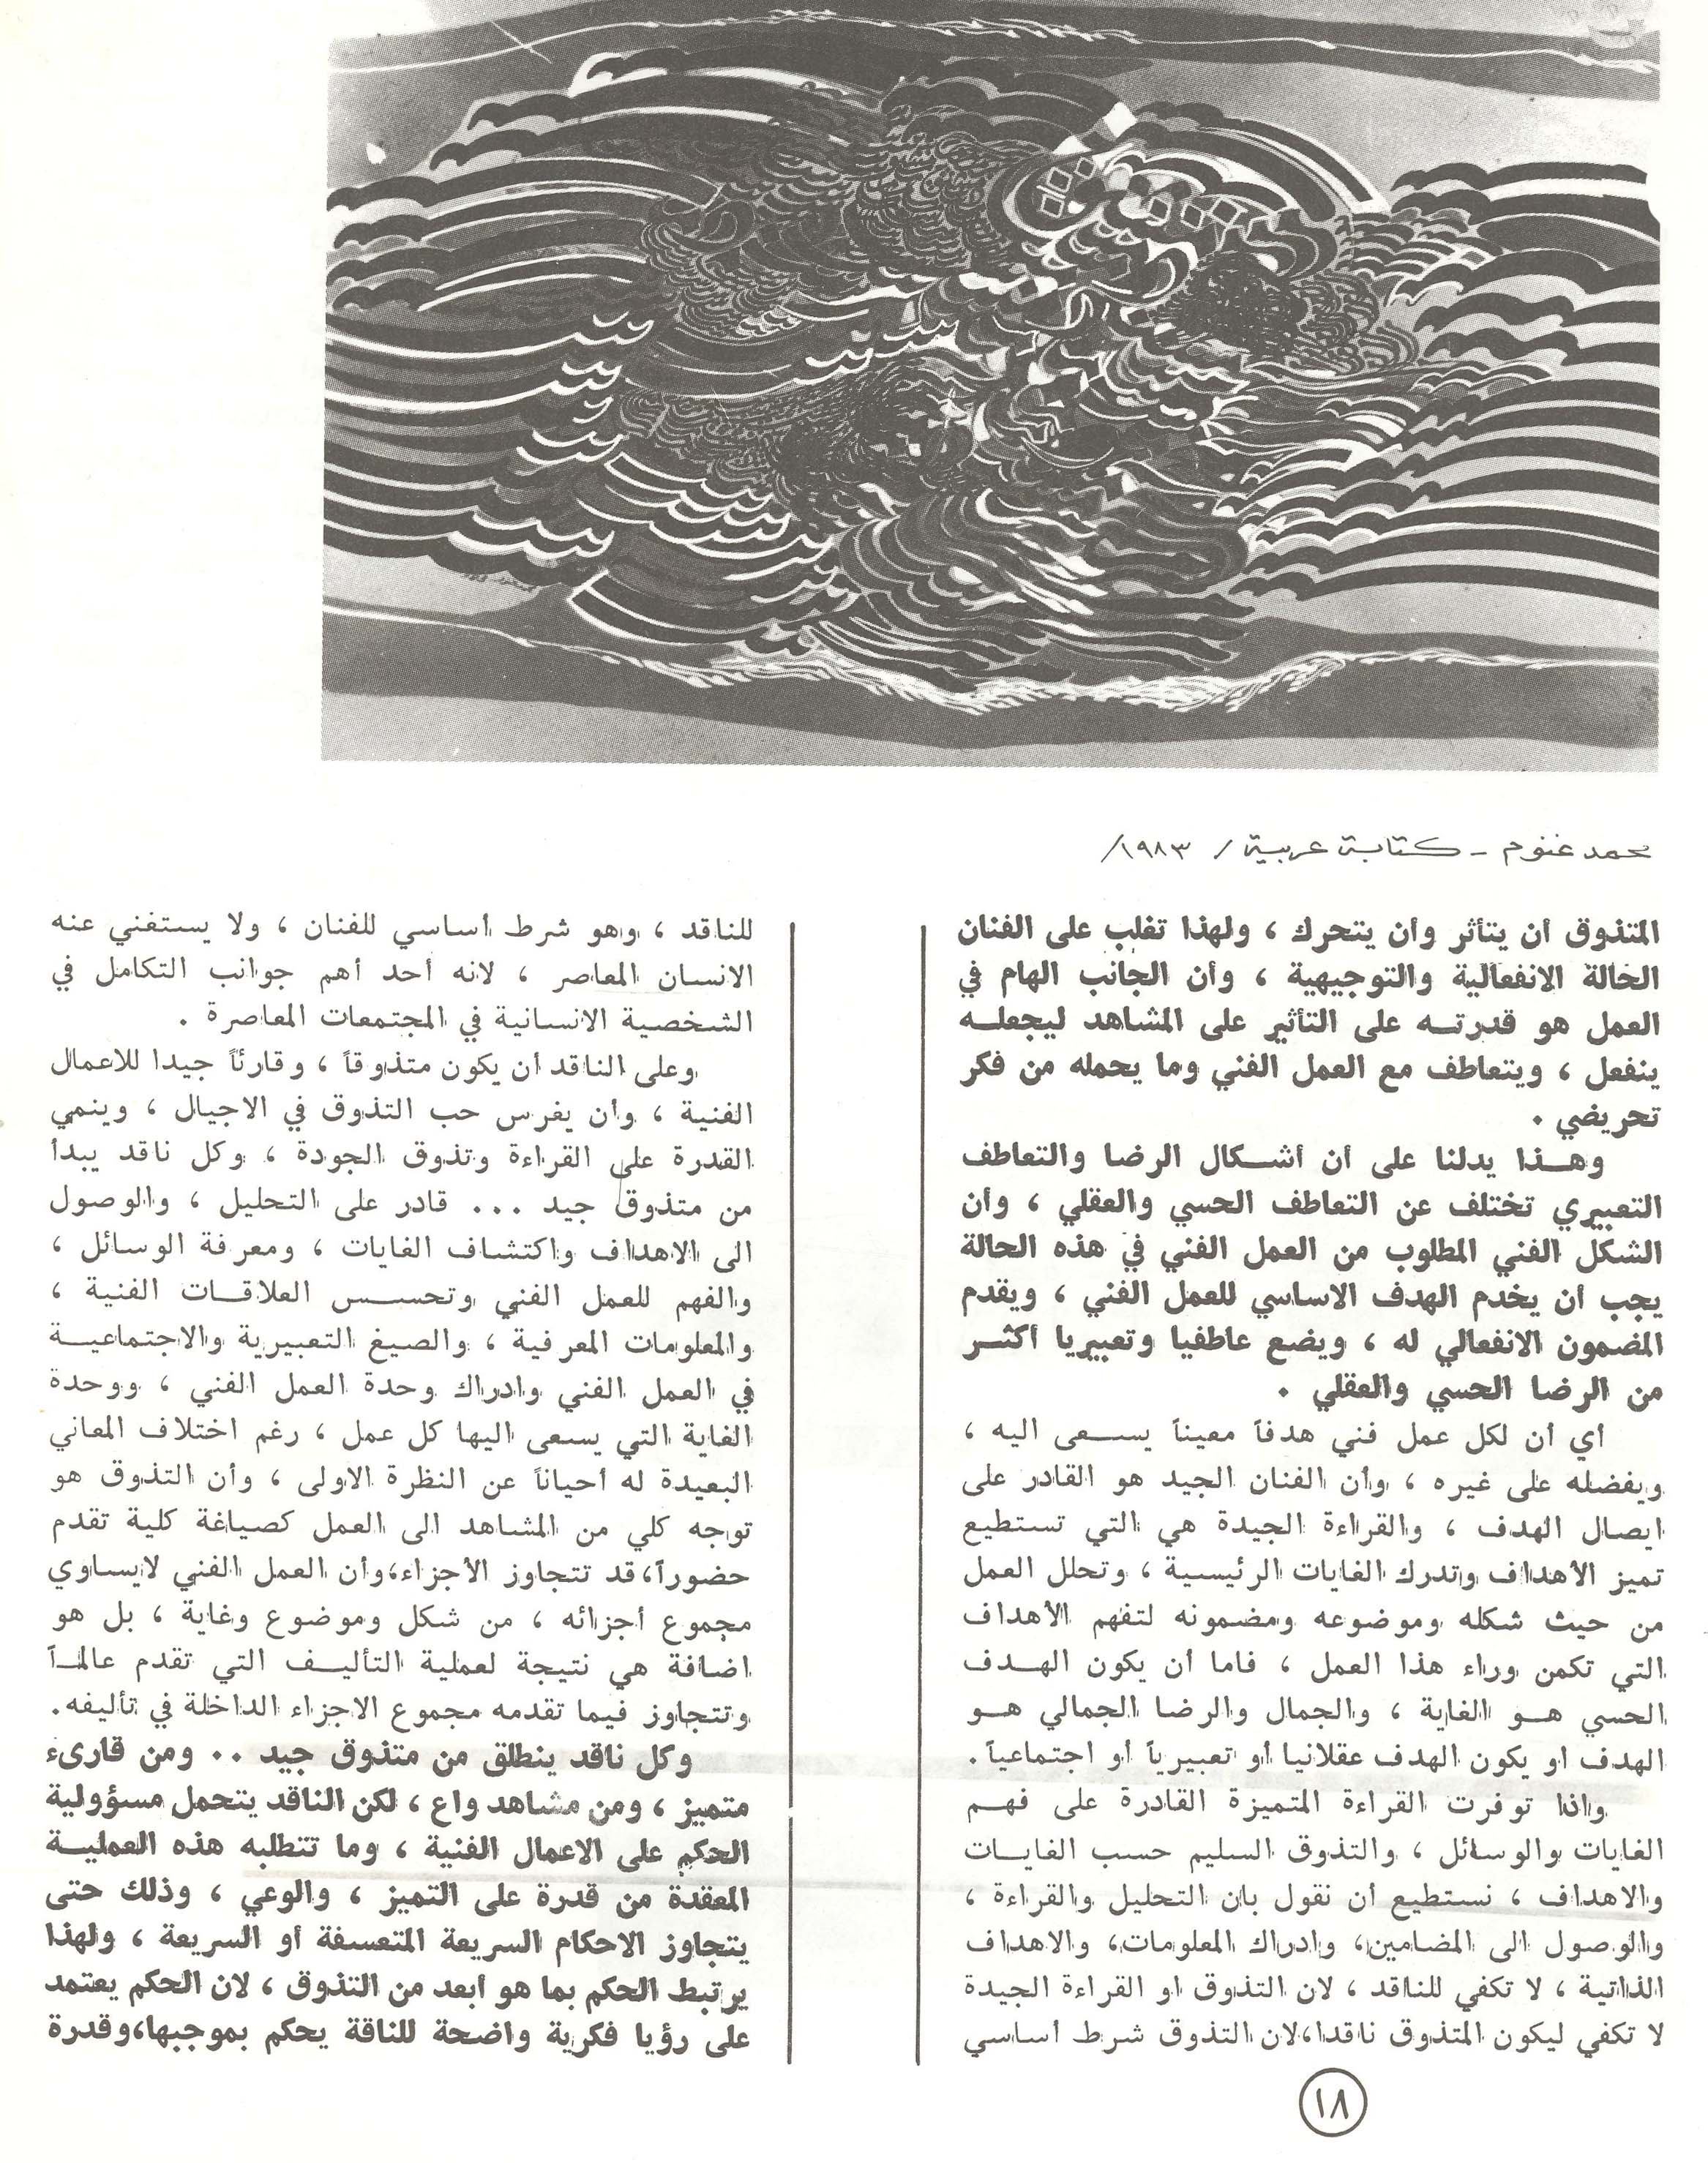 محمد غنوم - كتابة عربية / ١٩٨٣/
المتذوق أن يتأثر وأن يتحرك ، ولهذا تغلب على الفنان
الحالة الانفعالية والتوجيهية ، وأن الجانب الهام في
العمل هو قدرتـه على التأثير على المشاهد ليجعلـه
ينفعل ، ويتعاطف مع العمل الفني وما يحمله من فكر
تحريضي .
وهـذا يدلنا على أن أشـكال الرضا والتعاطف
التعبيري تختلف عن التعاطف الحسي والعقلي ، وأن
الشكل الفني المطلوب من العمل الفني في هذه الحالة
يجب أن يخدم الهدف الاساسي للعمل الفني ، ويقدم
المضمون الانفعالي له ، ويضع عاطفيا وتعبيريا أكثـر
من الرضا الحسي والعقلي .
أي أن لكل عمل فني هدفاً معيناً يسـعى اليه ،
ويفضله على غيره ، وأن الفنان الجيد هو القادر على
ايصال الهدف ، والقراءة الجيدة هي التي تستطيع
تميز الأهداف وتدرك الغايات الرئيسية ، وتحلل العمل
من حيث شكله وموضوعه ومضمونه لتفهم الأهداف
التي تكمن وراء هذا العمل ، فاما أن يكون الهـدف
الحسي هـو الغاية ، والجمال والرضا الجمالي هـو
الهدف او يكون الهدف عقلانيا أو تعبيرياً أو اجتماعياً .
واذا توفرت القراءة المتميزة القادرة على فهـم
الغايات والوسائل ، والتذوق السليم حسب الغايـات
والاهداف ، نستطيع أن نقول بان التحليل والقراءة ،
والوصول الى المضامين، وادراك المعلومات، والاهداف
الذاتية ، لا تكفي للناقد ، لان التذوق او القراءة الجيدة
لا تكفي ليكون المتذوق ناقدا،لان التذوق شرط أساسي
للناقد ، وهو شرط أساسي للفنان ، ولا يستغني عنه
الانسان المعاصر ، لانه أحد أهم جوانب التكامل في
الشخصية الانسانية في المجتمعات المعاصرة .
وعلى الناقد أن يكون متذوقاً ، وقارئاً جيدا للاعمال
الفنية ، وأن يغرس حب التذوق في الاجيال ، وينمي
القدرة على القراءة وتذوق الجودة ، وكل ناقد يبدأ
من متذوق جيد ... قادر على التحليل ، والوصول
الى الاهداف واكتشاف الغايات ، ومعرفة الوسائل ،
والفهم للعمل الفني وتحسـس العلاقـات الفنية ،
والمعلومات المعرفية ، والصيغ التعبيرية والاجتماعيـة
في العمل الفني وادراك وحدة العمل الفني ، ووحدة
الغاية التي يسعى اليها كل عمل ، رغم اختلاف المعاني
البعيدة له أحياناً عن النظرة الاولى ، وأن التذوق هو
توجه كلي من المشاهد الى العمل كصياغة كلية تقدم
حضوراً،قد تتجاوز الأجزاء،وأن العمل الفني لايساوي
مجموع أجزائه ، من شكل وموضوع وغاية ، بل هو
اضافة هي نتيجة لعملية التأليـف التي تقدم عالمـاً
وتتجاوز فيما تقدمه مجموع الاجزاء الداخلة في تأليفه .
وكل ناقد ينطلق من متذوق جيد .. ومن قارىء
متميز ، ومن مشاهد واع ، لكن الناقد يتحمل مسؤولية
الحكم على الاعمال الفنية ، وما تتطلبه هذه العمليـة
المعقدة من قدرة على التميز ، والوعي ، وذلك حتى
يتجاوز الاحكام السريعة المتعسفة أو السريعة ، ولهذا
يرتبط الحكم بما هو ابعد من التذوق ، لان الحكم يعتمد
على رؤيا فكرية واضحة للناقة يحكم بموجبها،وقدرة
١٨